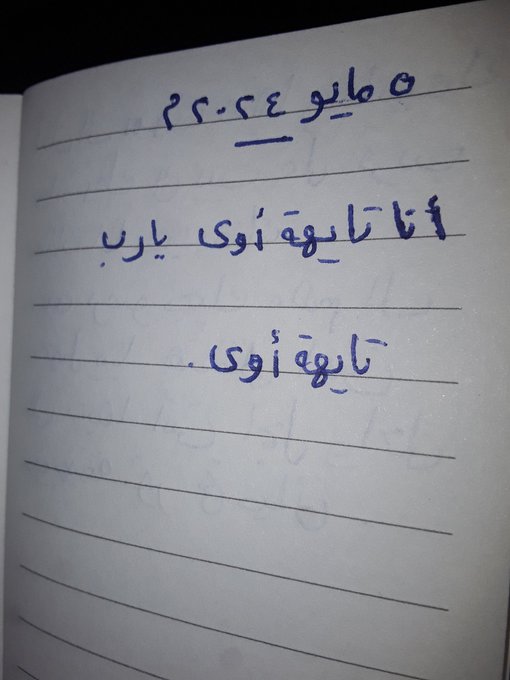 ٥ مايو ٢٠٢٤ م
أنا تايهة أوى يارب
تايهة أوى .